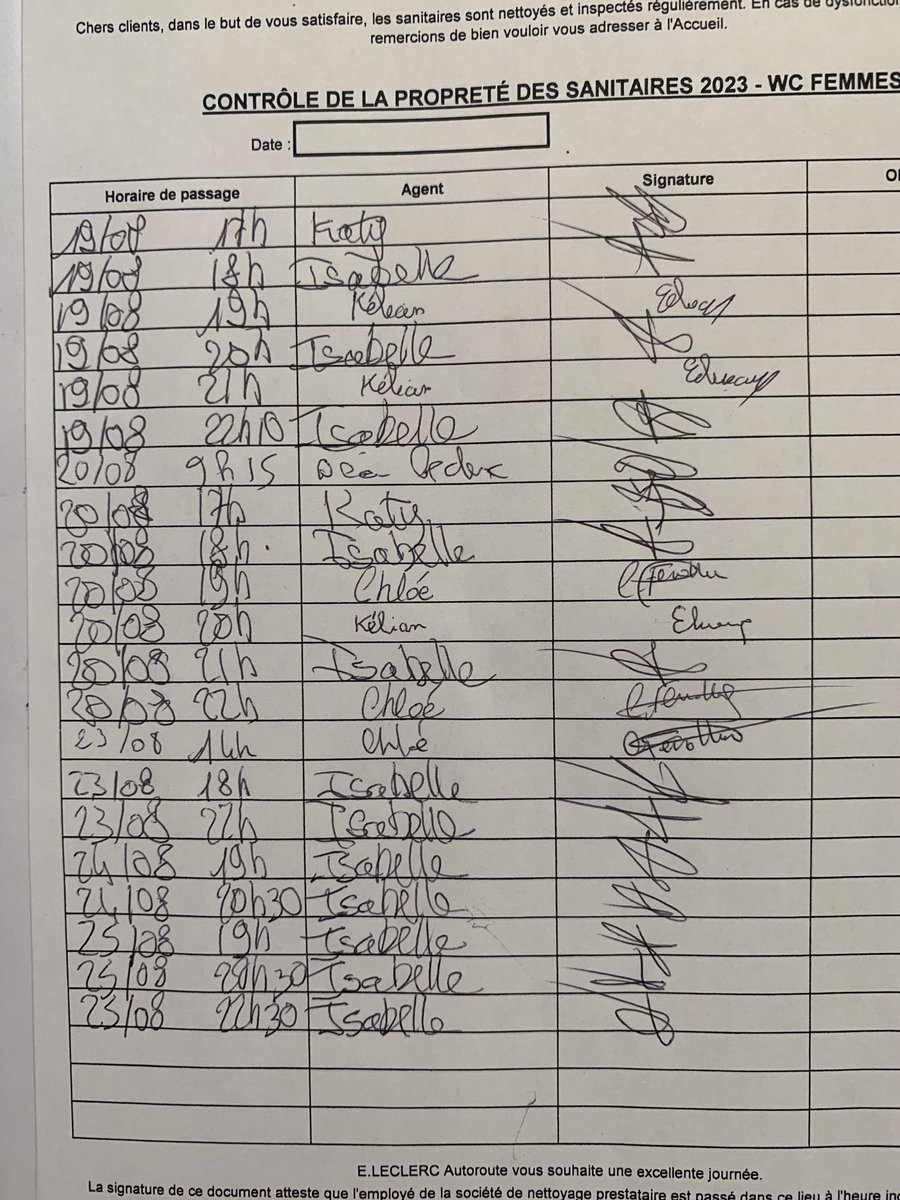 Chers clients, dans le but de vous satisfaire, les sanitaires sont nettoyés et inspectés régulièrement. En cas de dysfonction
remercions de bien vouloir vous adresser à l'Accueil.
CONTRÔLE DE LA PROPRETÉ DES SANITAIRES 2023 - WC FEMMES
Date :
Horaire de passage Agent Signature
19/08 17h Katy
19/08 18h Isabelle
19/08 19h Kélian
19/08 20h Isabelle
19/08 21h Kélian
19/08 22h10 Isabelle
20/08 9h15
20/08 17h Katy
20/08 18h Isabelle
20/08 19h Chloé
20/08 20h Kélian
20/08 21h Isabelle
20/08 22h Chloé
23/08 14h Chloé
23/08 18h Isabelle
23/08 22h Isabelle
24/08 19h Isabelle
24/08 20h30 Isabelle
25/08 19h Isabelle
25/08 20h30 Isabelle
25/08 22h30 Isabelle
E.LECLERC Autoroute vous souhaite une excellente journée.
La signature de ce document atteste que l'employé de la société de nettoyage prestataire est passé dans ce lieu à l'heure